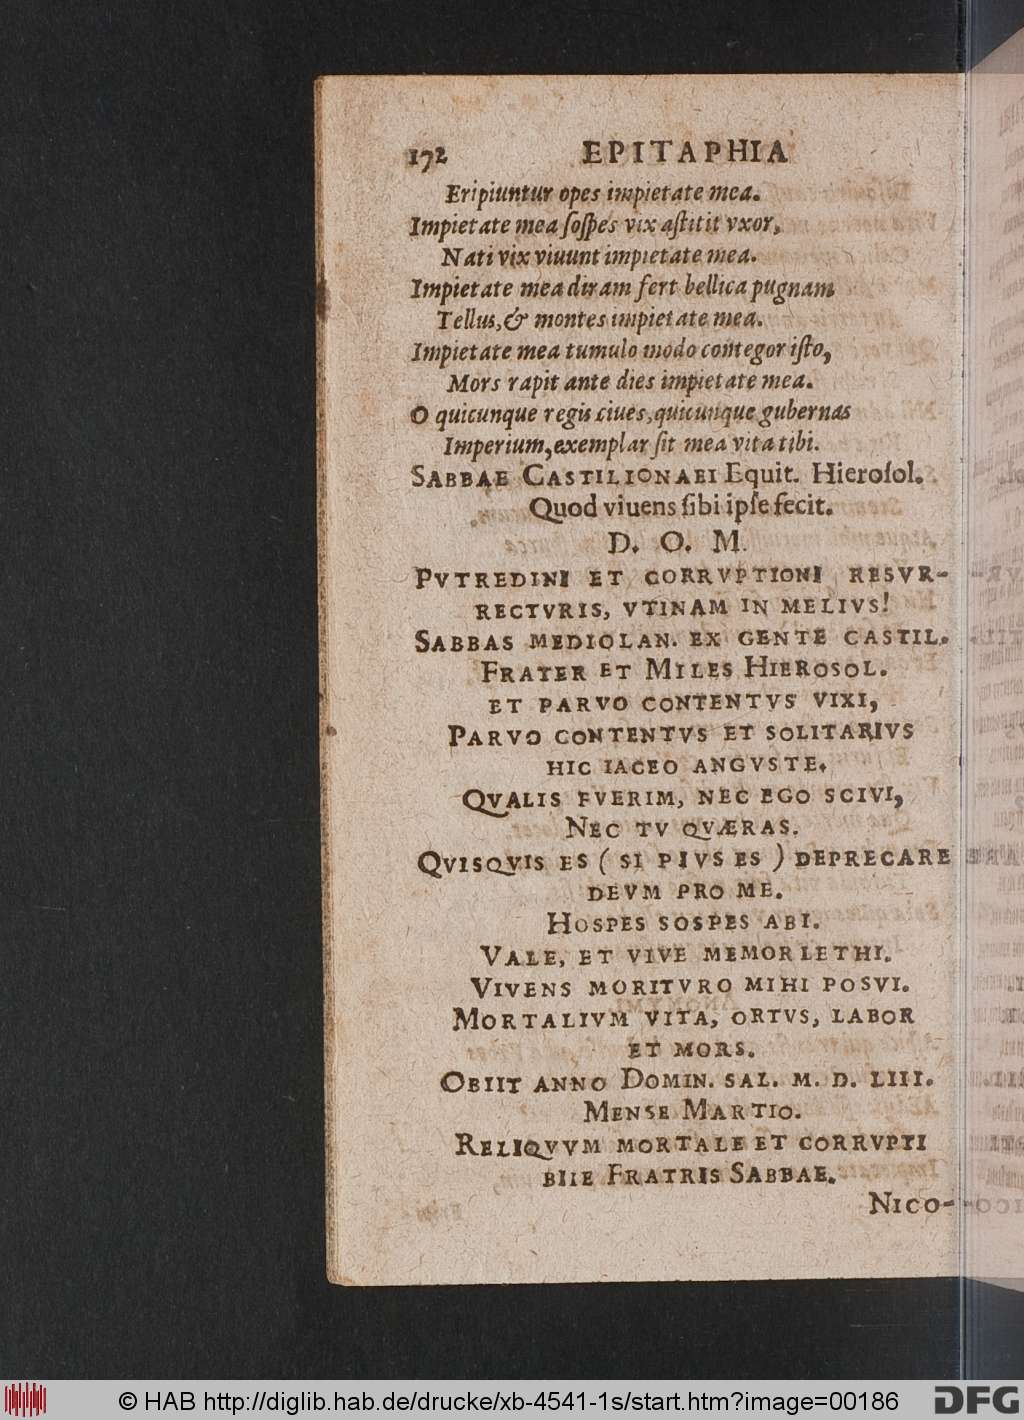 172 EPITAPHIA
Eripiuntur opes impietate mea.
Impietate mea ſoſpes vix aſtitit vxor,
Nati vix viuunt impietate mea.
Impietate mea diram fert bellica pugnam
Tellus, & montes impietate mea.
Impietate mea tumulo modo contegor iſto,
Mors rapit ante dies impietate mea.
O quicunque regis ciues, quicunque gubernas
Imperium, exemplar ſit mea vita tibi.
SABBAE CASTILIONAEI Equit. Hieroſol.
Quod viuens ſibi ipſe fecit.
D. O. M.
PVTREDINI ET CORRVPTIONI RESVR-
RECTVRIS, VTINAM IN MELIVS!
SABBAS MEDIOLAN. EX GENTE CASTIL.
FRATER ET MILES HIEROSOL.
ET PARVO CONTENTVS VIXI,
PARVO CONTENTVS ET SOLITARIVS
HIC IACEO ANGVSTE.
QVALIS FVERIM, NEC EGO SCIVI,
NEC TV QVÆRAS.
QVISQVIS ES ( SI PIVS ES ) DEPRECARE
DEVM PRO ME.
HOSPES SOSPES ABI.
VALE, ET VIVE MEMOR LETHI.
VIVENS MORITVRO MIHI POSVI.
MORTALIVM VITA, ORTVS, LABOR
ET MORS.
OBIIT ANNO DOMIN. SAL. M. D. LIII.
MENSE MARTIO.
RELIQVVM MORTALE ET CORRVPTI
BIIE FRATRIS SABBAE.
NICO-
© HAB http://diglib.hab.de/drucke/xb-4541-1s/start.htm?image=00186
DFG